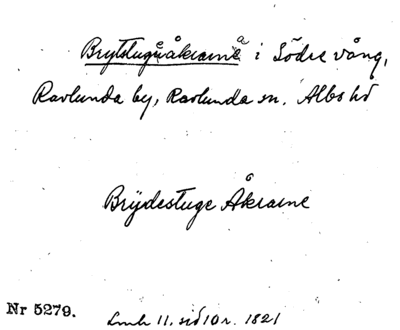 Brytstugeåkrarna i Södre vång,
Ravlunda by, Ravlunda sn. Albo hd
Brydestuge Åkrarne
Nr 5279.
Lmh 11. sid 10 r. 1821